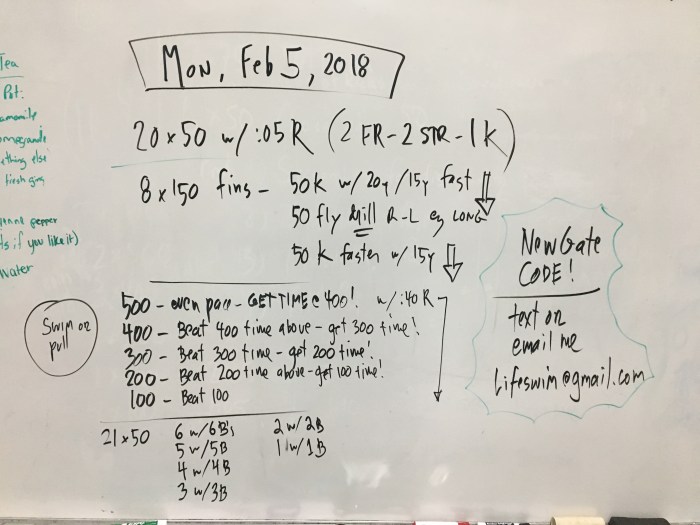 Tea
Pot:
amomile
omegranate
ething else
firsh ging
pepper
ls if you like it)
water
Mon, Feb 5, 2018
20 x 50 w/ :05 R (2 FR - 2 STR - 1 K)
8 x 150 fins - 50 k w/ 20y / 15y fast
50 fly drill R-L ez LONG
50 k faster w/ 15y
500 - even pace - GET TIME @ 400! w/ :40 R
400 - Beat 400 time above - get 300 time!
300 - Beat 300 time - get 200 time!
200 - Beat 200 time above - get 100 time!
100 - Beat 100
Swim or
pull
21 x 50 6 w/ 6B's 2 w/ 2B
5 w/ 5B 1 w/ 1B
4 w/ 4B
3 w/ 3B
New Gate
CODE!
text or
email me
Lifeswim@gmail.com